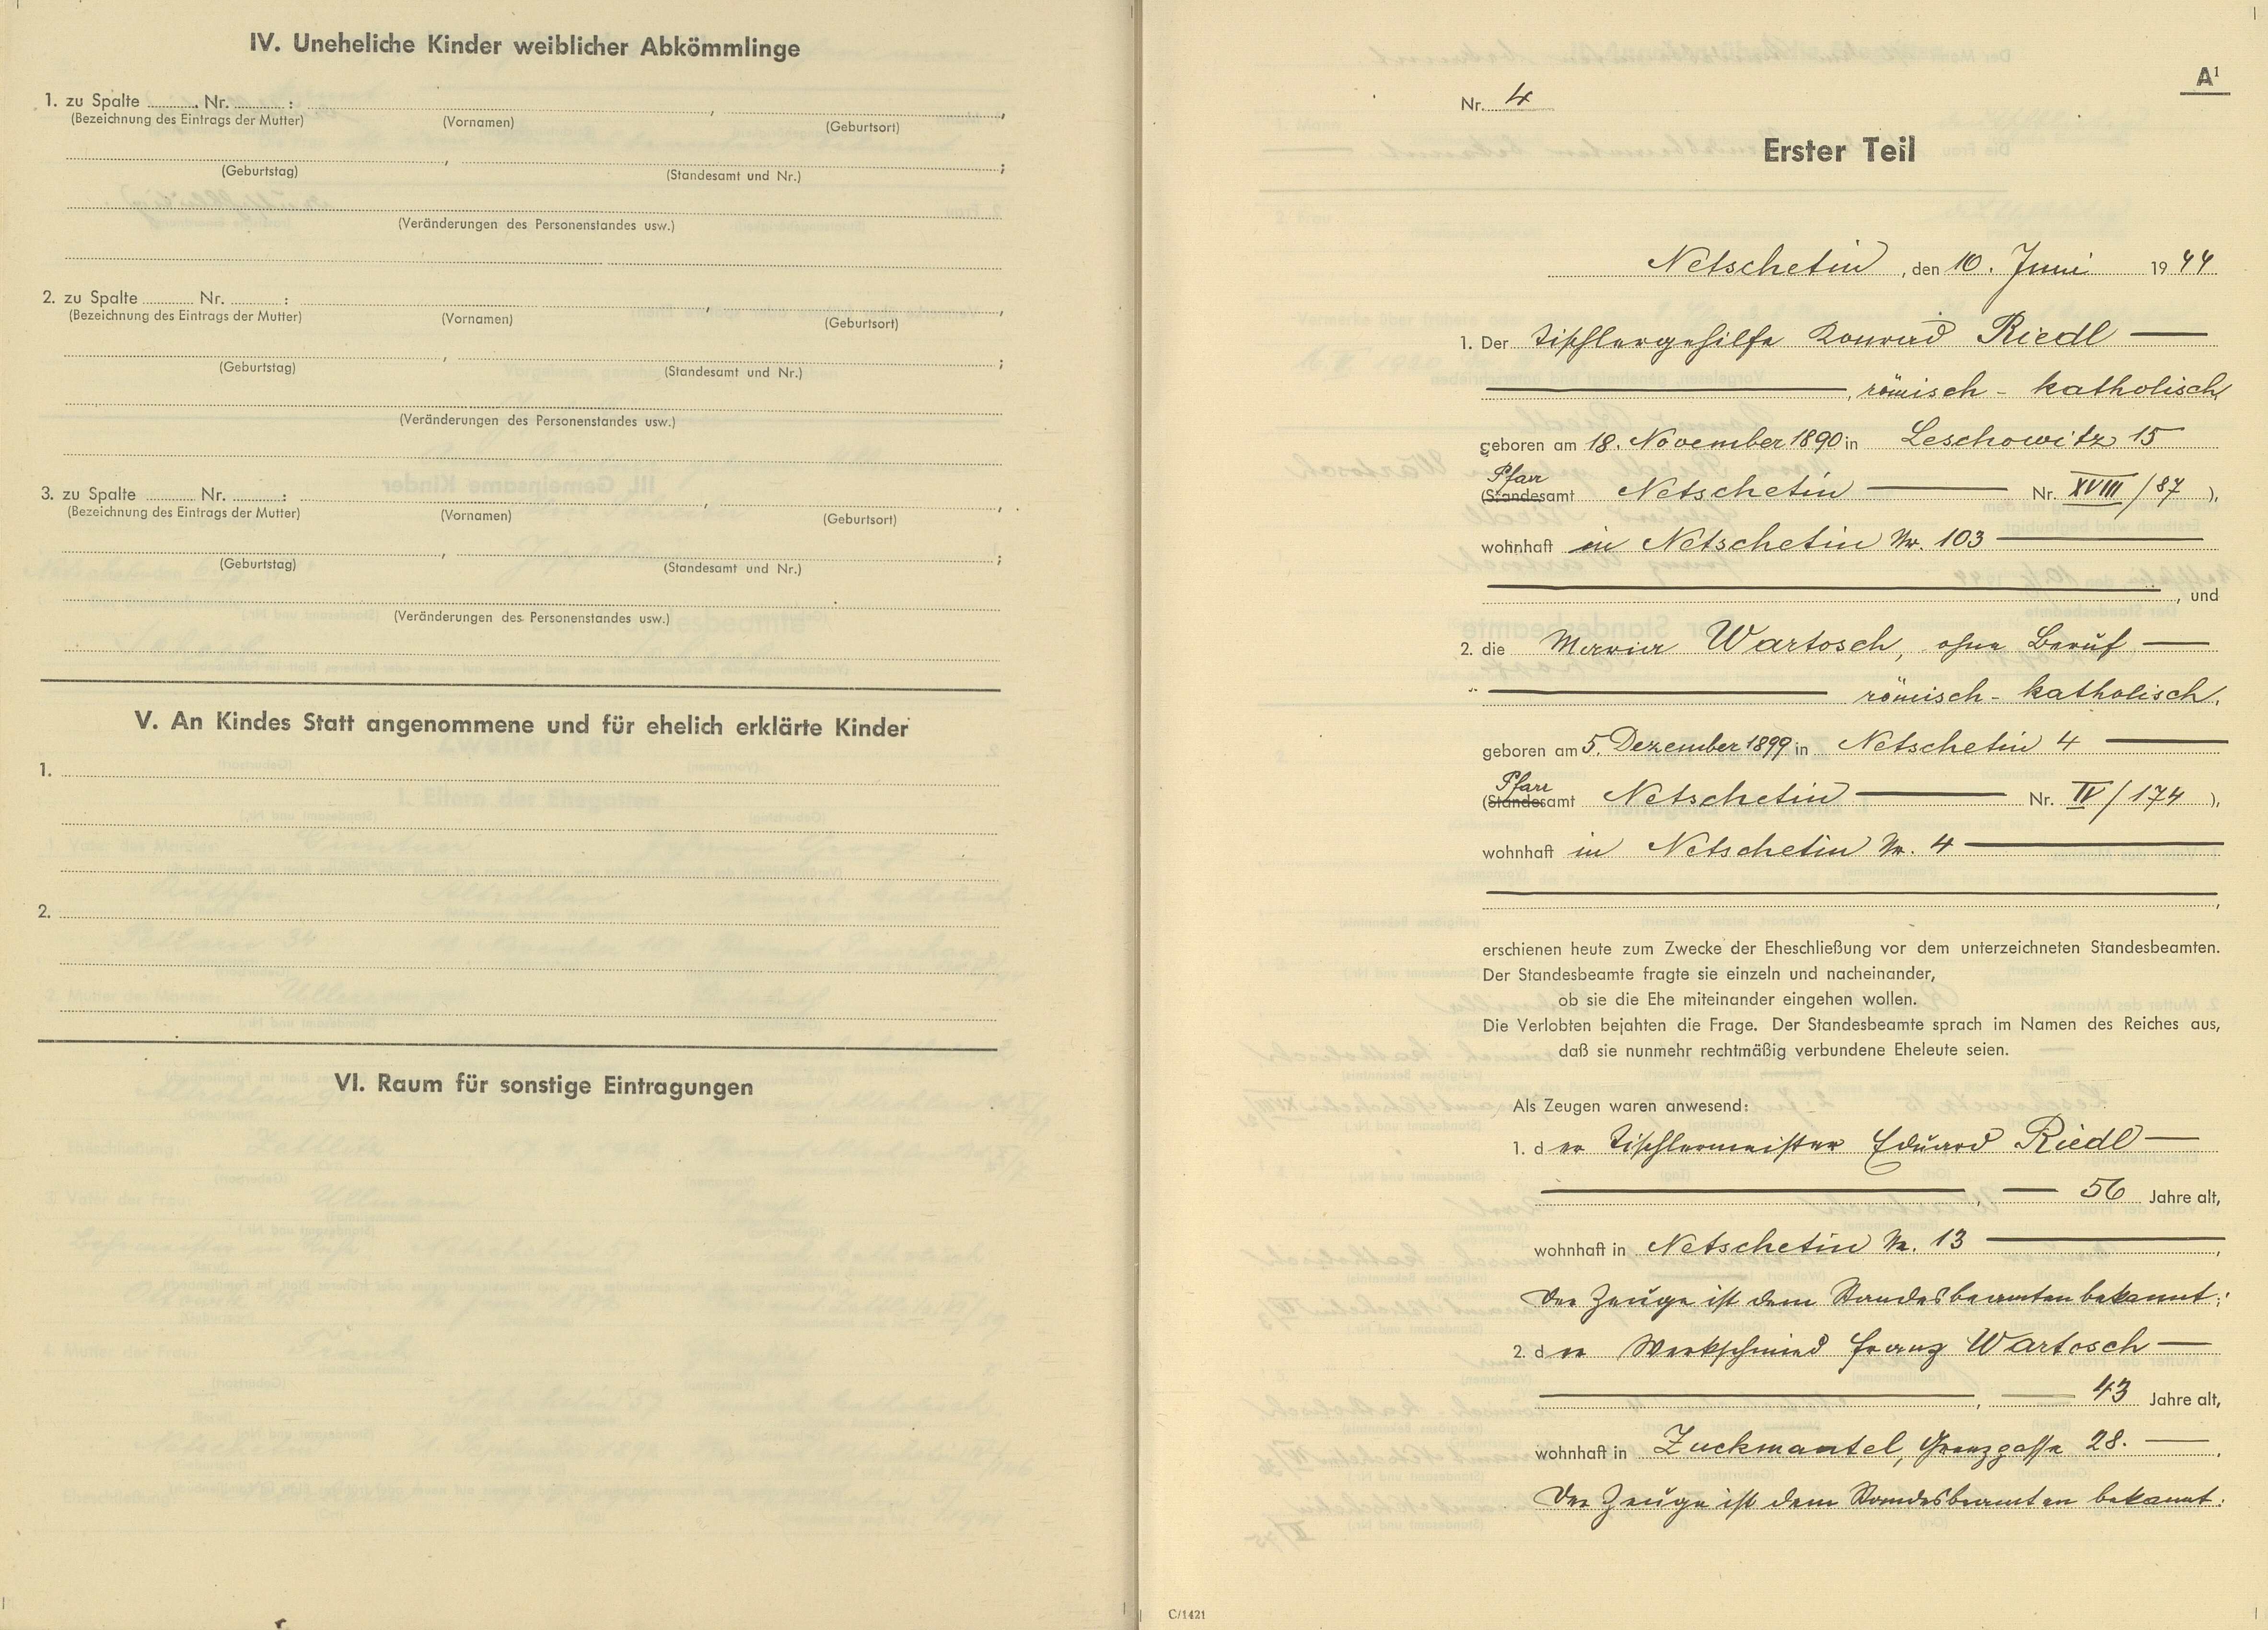 IV. Uneheliche Kinder weiblicher Abkömmlinge
1. zu Spalte ........... Nr. ........... : , ,
(Bezeichnung des Eintrags der Mutter) (Vornamen) (Geburtsort)
, ;
(Geburtstag) (Standesamt und Nr.)
(Veränderungen des Personenstandes usw.)
2. zu Spalte ........... Nr. ........... : , ,
(Bezeichnung des Eintrags der Mutter) (Vornamen) (Geburtsort)
, ;
(Geburtstag) (Standesamt und Nr.)
(Veränderungen des Personenstandes usw.)
3. zu Spalte ........... Nr. ........... : , ,
(Bezeichnung des Eintrags der Mutter) (Vornamen) (Geburtsort)
, ;
(Geburtstag) (Standesamt und Nr.)
(Veränderungen des Personenstandes usw.)
V. An Kindes Statt angenommene und für ehelich erklärte Kinder
1.
2.
VI. Raum für sonstige Eintragungen
A1
Nr. 4
Erster Teil
Netschetin, den 10. Juni 1944
1. Der Tischlergehilfe Konrad Riedl —
—, römisch - katholisch,
geboren am 18. November 1890 in Leschowitz 15
Pfarr
(Standesamt Netschetin — Nr. XVIII/87 ),
wohnhaft in Netschetin Nr. 103 —
—, und
2. die Maria Wartosch, ohne Beruf —
— römisch - katholisch,
geboren am 5. Dezember 1899 in Netschetin 4 —
Pfarr
(Standesamt Netschetin — Nr. IV/174 ),
wohnhaft in Netschetin Nr. 4 —
—,
erschienen heute zum Zwecke der Eheschließung vor dem unterzeichneten Standesbeamten.
Der Standesbeamte fragte sie einzeln und nacheinander,
ob sie die Ehe miteinander eingehen wollen.
Die Verlobten bejahten die Frage. Der Standesbeamte sprach im Namen des Reiches aus,
daß sie nunmehr rechtmäßig verbundene Eheleute seien.
Als Zeugen waren anwesend:
1. der Tischlermeister Eduard Riedl —
—, — 56 Jahre alt,
wohnhaft in Netschetin Nr. 13 —,
Der Zeuge ist dem Standesbeamten bekannt;
2. der Werkschmied Franz Wartosch —
—, — 43 Jahre alt,
wohnhaft in Zuckmantel, Grenzgasse 28. —,
Der Zeuge ist dem Standesbeamten bekannt.
C/1421